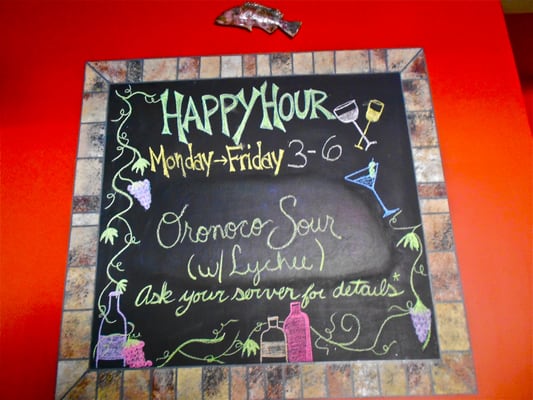 HAPPY HOUR
Monday→Friday 3-6
Oronoco Sour
(w/ Lychee)
Ask your server for details*